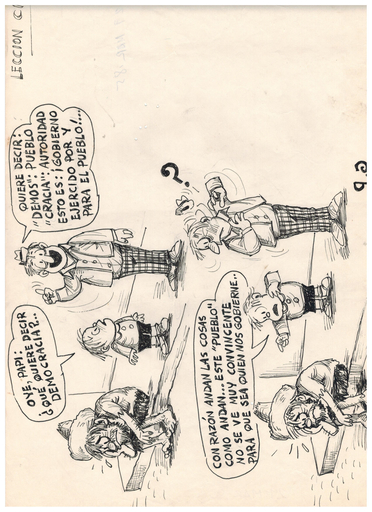 LECCION
OYE, PAPI:
¿QUÉ QUIERE DECIR
DEMOCRACIA?..
QUIERE DECIR:
"DEMOS": PUEBLO
"CRACIA": AUTORIDAD
ESTO ES: ¡GOBIERNO
EJERCIDO POR Y
PARA EL PUEBLO!...
CON RAZON ANDAN LAS COSAS
COMO ANDAN... ESTE "PUEBLO"
NO SE VE MUY CONVINCENTE
PARA QUE SEA QUIEN NOS GOBIERNE..
?